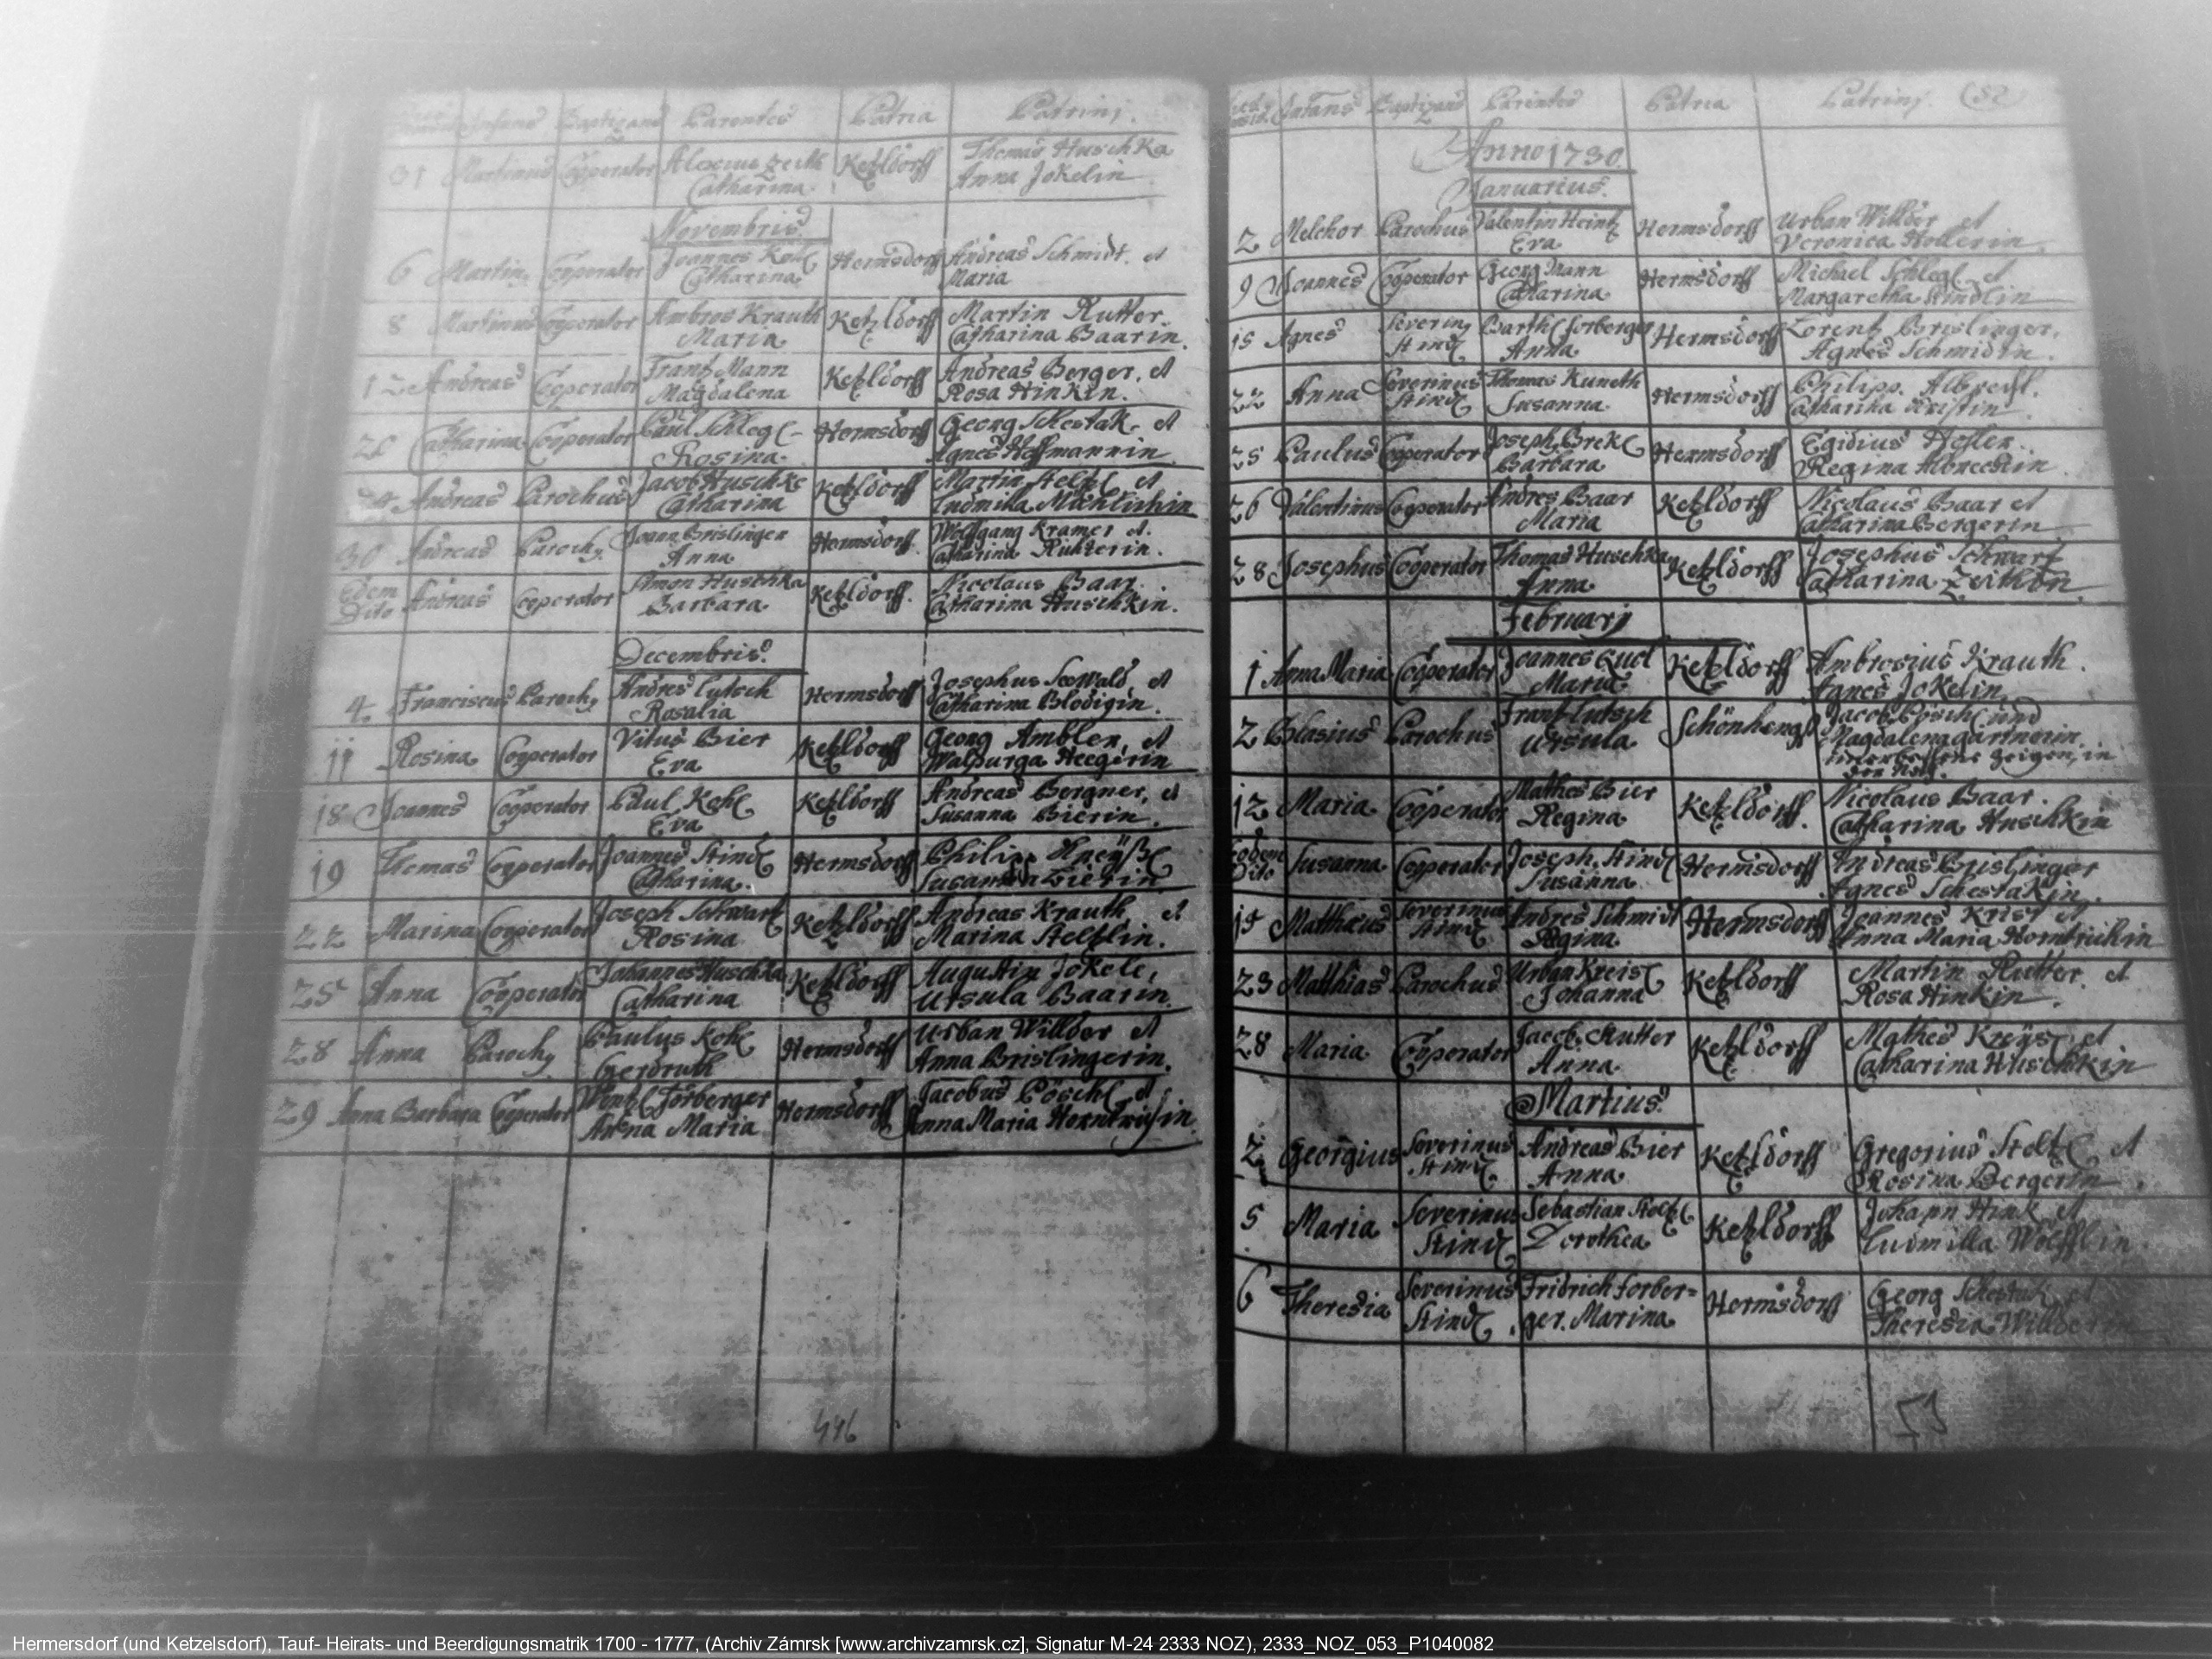 Infans Baptizans Parentes Patria Patrini.
31 Martinus Cooperator Alexius Zeith Ketzldorff Thomas Huschka
Catharina Anna Jokelin
Novembris
6 Martin, Cooperator Joannes Hermsdorff Andreas Schmidt. et
Catharina Maria
8 Martinus Cooperator Ambros Krauth Ketzldorff Martin Rutter
Maria Catharina Baarin.
12 Andreas Cooperator Frantz Mann Ketzldorff Andreas Berger. et
Magdalena Rosa Hinkin.
20 Catharina Cooperator Paul Schlegl Hermsdorff Georg Schestak, et
Rosina. Agnes Hoffmannin
Andreas Parochus Jacob Huschke Ketzldorff Martin Steltzl et
Catharina Ludmila
30 Andreas Paroch, Joann Brislinger Hermsdorff Wolffgang Kramer et.
Anna Catharina
Edem Simon Huschka Nicolaus Baar.
Dito Andreas Cooperator Barbara Ketzldorff. Catharina Huschkin.
Decembris.
4. Franciscus Paroch, Andres Lutsch Hermsdorff Josephus Seewald et
Rosalia Catharina Blodigin.
11 Rosina Cooperator Vitus Bier Ketzldorff Georg Ambler, et
Eva Walpurga Heegerin
18 Joannes Cooperator Paul Kohl Ketzldorff Andreas Bergner, et
Eva Susanna Bierin.
19 Thomas Cooperator Joannes Stindl Hermsdorff Philipp
Catharina. Susanna Bierin
22 Marina Cooperator Joseph Schwartz Ketzldorff Andreas Krauth et
Rosina Marina Steltzlin.
25 Anna Cooperator Johannes Huschka Ketzldorff Augustin Jokele,
Catharina Ursula Baarin.
28 Anna Paroch, Paulus Kohl Hermsdorff Urban Willder et
Gerdruth Anna Brislingerin.
29 Anna Barbara Cooperator Wentzl Forberger Hermsdorff Jacobus Pöschl et
Anna Maria Anna Maria
446
Infans Baptizans Parentes Patria Patrinj (52)
Anno 1730.
Januarius.
2 Melchor Parochus Valentin Heintz Hermsdorff Urban Willder et
Eva Veronica Hollerin.
9 Joannes Cooperator Georg Mann Hermsdorff Michael Schlegl et
Catharina Margaretha Stindlin
15 Agnes Severin, Barthl forberger Hermsdorff Lorentz Brislinger,
Stindl Anna Agnes Schmidtin.
22 Anna Severinus Thomas Kuneth Hermsdorff Philipp. Albrecht.
Stindl Susanna. Catharina Kristin
25 Paulus Cooperator Joseph Brekl Hermsdorff Egidius Hesler.
Barbara Regina Albrechtin
26 Valentinus Cooperator Andres Baar Ketzldorff Nicolaus Baar et
Maria Catharina Bergerin
28 Josephus Cooperator Thomas Huschka Ketzldorff Josephus Schwartz
Anna Catharina
Februarj
1 Anna Maria Cooperator Joannes Ketzldorff Ambrosius Krauth.
Maria Agnes Jokelin
2 Blasius Parochus Frantz Lutsch Schönhengst Jacob Pöschl und
Ursula Magdalena gartnerin.
Zeigen, in
der
12 Maria Cooperator Mathes Bier Ketzldorff. Nicolaus Baar.
Regina Catharina Huschkin
Eodem Susanna Cooperator Joseph Stindl Hermsdorff Andreas Brislinger
Dito Susanna Agnes Schestakin.
15 Matthæus Severinus Andres Schmidt Hermsdorff Joannes Krist et
Stindl Regina Anna Maria
23 Matthias Parochus Urban Kreisl Ketzldorff Martin Rutter. et
Johanna Rosa Hinkin.
28 Maria Cooperator Jacob Rutter Ketzldorff Mathes Kreysl et
Anna Catharina Huschkin
Martius.
2 Georgius Severinus Andreas Bier Ketzldorff Gregorius Steltzl et
Stindl Anna Rosina Bergerin.
5 Maria Severinus Sebastian Steltzl Ketzldorff Johann Hink et
Stindl Dorothea Ludmilla Wölfflin
6 Theresia Severinus Fridrich Forber= Hermsdorff Georg Schestak et
Stindl. ger. Marina Theresia Willderin
53
Hermersdorf (und Ketzelsdorf), Tauf- Heirats- und Beerdigungsmatrik 1700 - 1777, (Archiv Zámrsk [www.archivzamrsk.cz], Signatur M-24 2333 NOZ), 2333_NOZ_053_P1040082